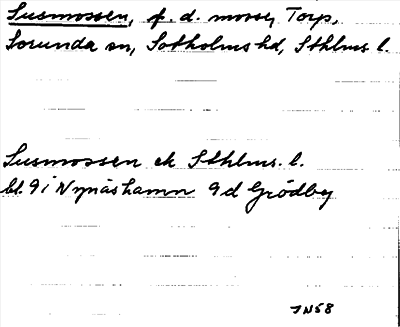 Susmossen, f. d. mosse, Torp,
Sorunda sn, Sotholms hd, Sthlms l.
Susmossen ek Sthlms. l.
bl. 9 i Nynäshamn 9d Grödby
JN58